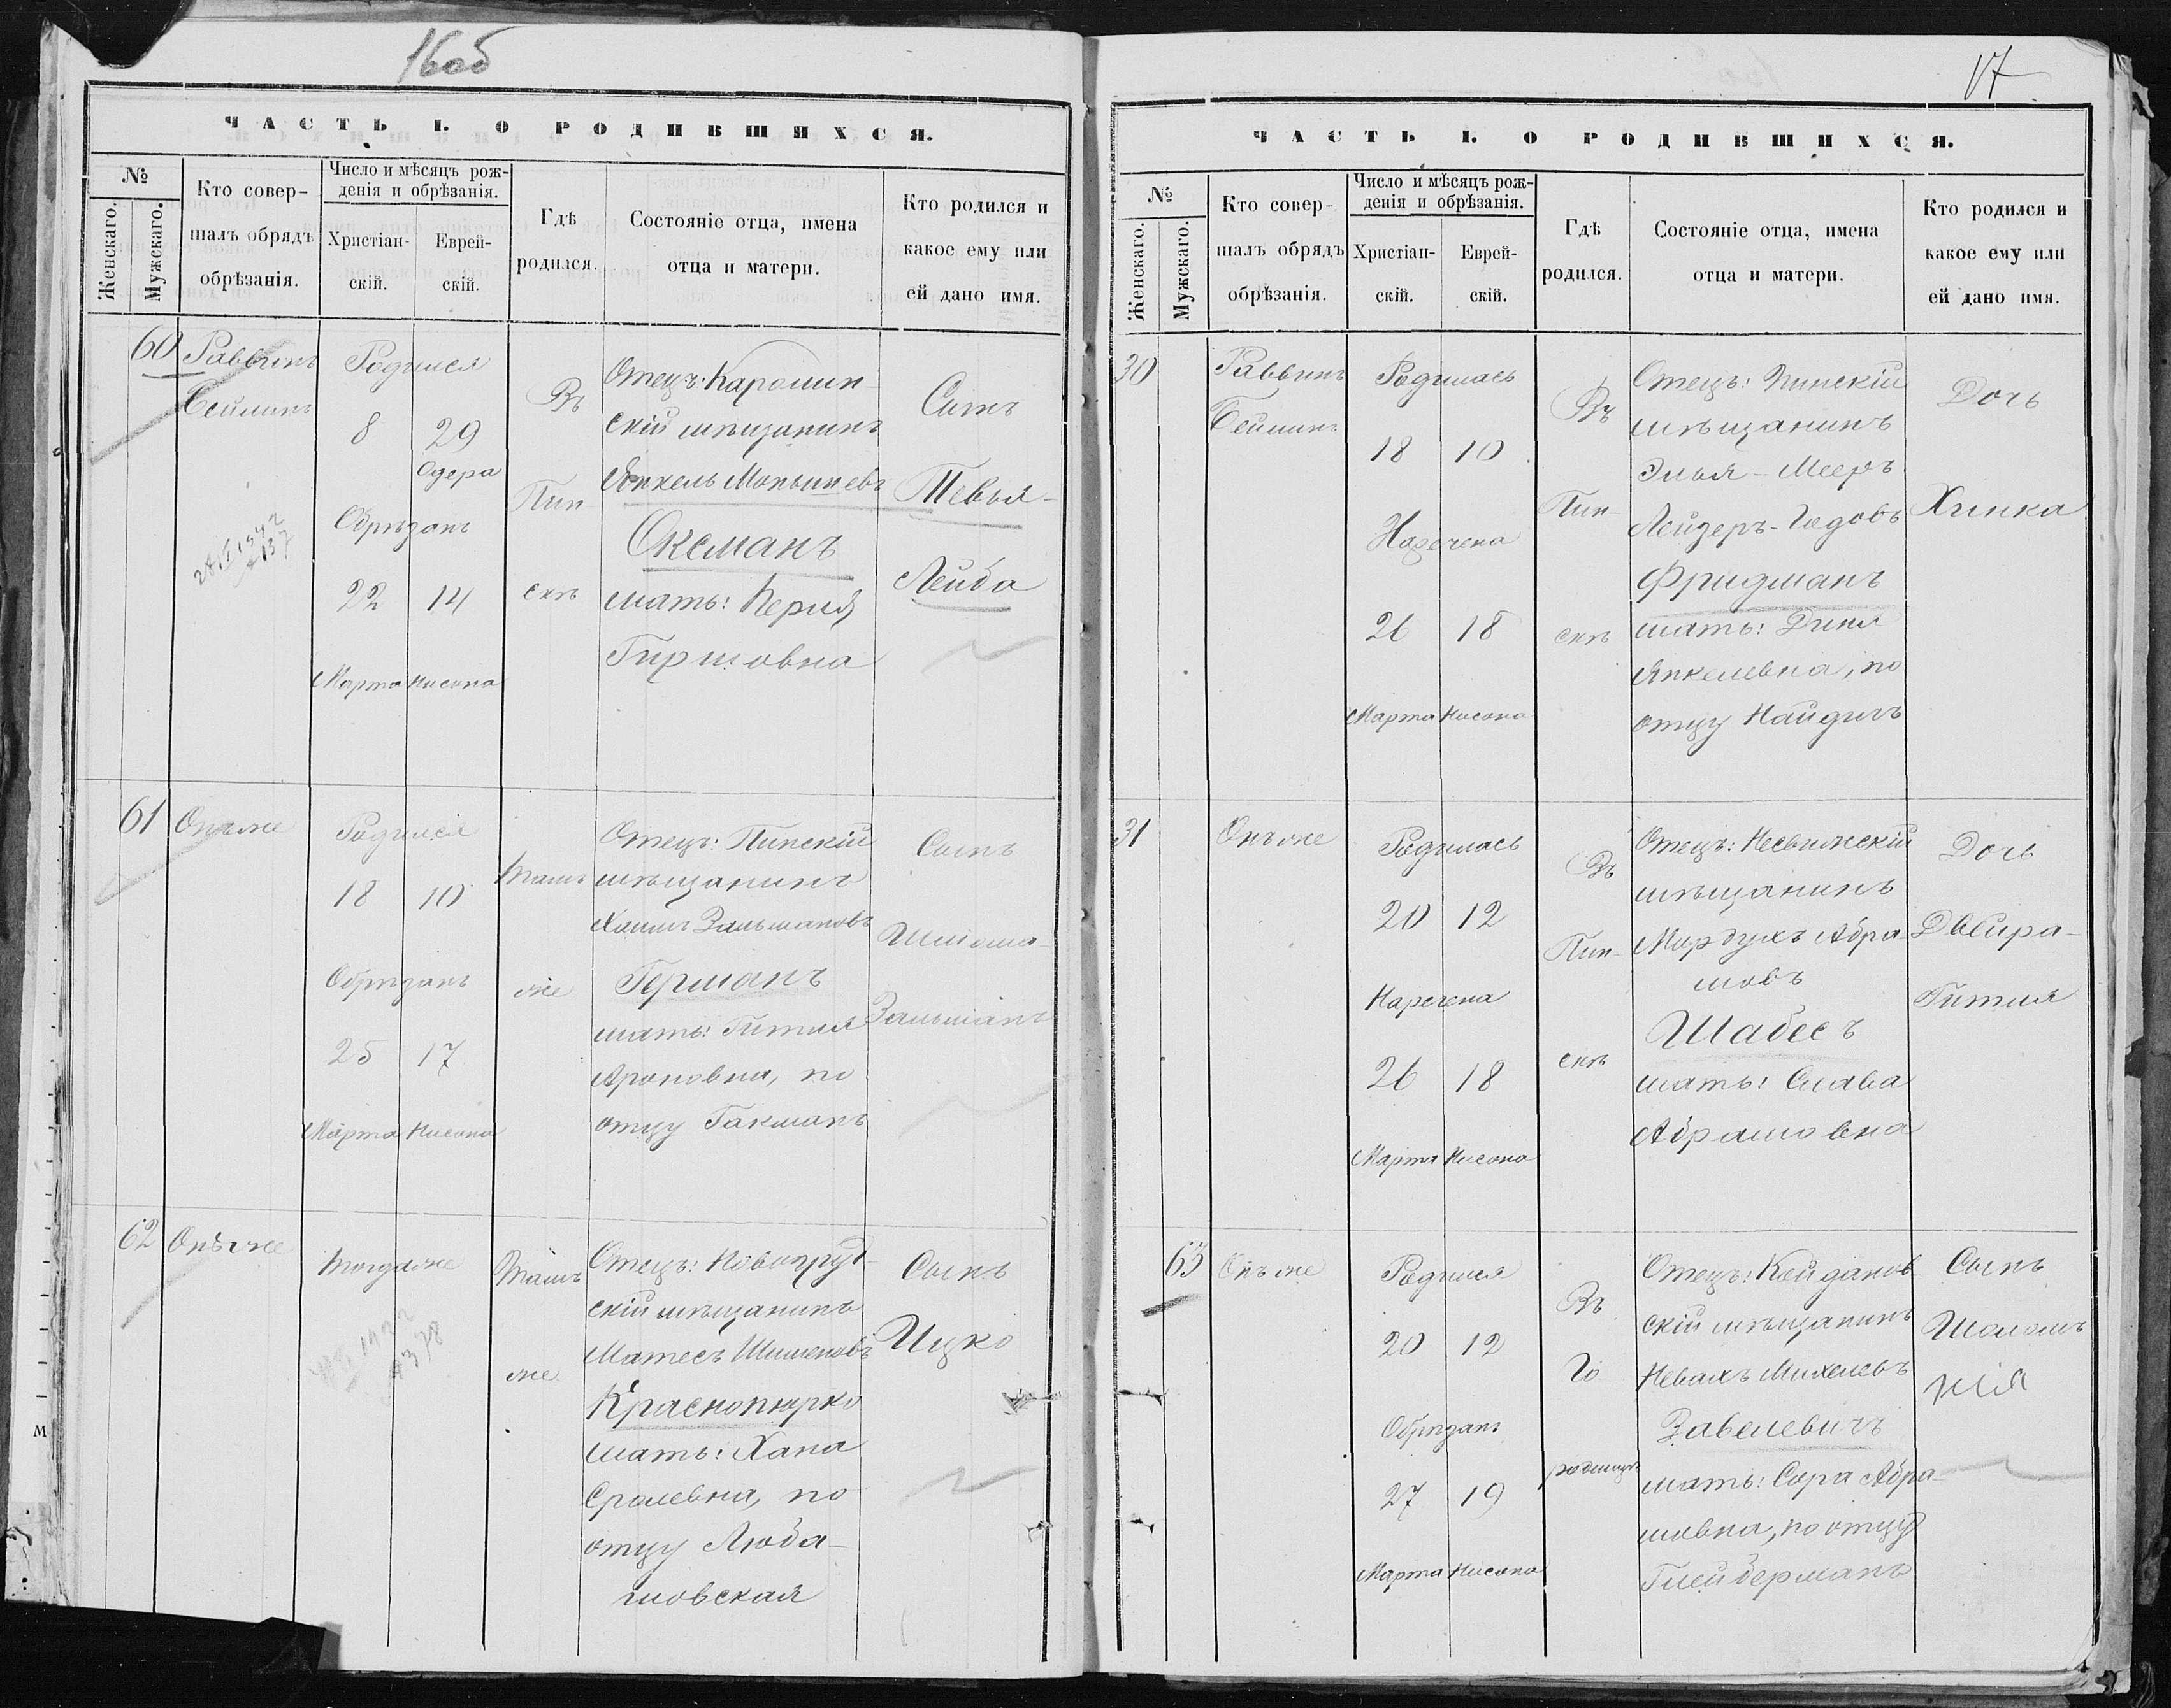 16об
ЧАСТЬ I. О РОДИВШИХСЯ.
№
Женскаго.
Мужскаго.
Кто совер-
шалъ обрядъ
обрѣзанія.
Число и мѣсяцъ рож-
денія и обрѣзанія.
Христіан-
скій.
Еврей-
скій.
Гдѣ
родился.
Состояніе отца, имена
отца и матери.
Кто родился и
какое ему или
ей дано имя.
60
Раввинъ
Бейлинъ
Родился
8 29
Одера
Обрѣзанъ
22 14
Марта Нисона
Въ
Пин-
скѣ
Отецъ: Каролин-
скій мѣщанинъ
Янкель Моньшевъ
Оксманъ
мать: Перля
Гиршовна
Сынъ
Тевья-
Лейба
61
Онъ же
Родился
18 10
Обрѣзанъ
25 17
Марта Нисона
Тамъ
же
Отецъ: Пинскій
мѣщанинъ
Хаимъ Зальмановъ
Германъ
мать: Гитля
Ароновна, по
отцу Гакманъ
Сынъ
Шлома-
Зальманъ
62
Онъ же
Тогда же
Тамъ
же
Отецъ: Новогруд-
скій мѣщанинъ
Матесъ Шименовъ
Краснопюрко
мать: Хана
Сролевна, по
отцу Люба-
шовская
Сынъ
Ицко
17
ЧАСТЬ I. О РОДИВШИХСЯ.
№
Женскаго.
Мужскаго.
Кто совер-
шалъ обрядъ
обрѣзанія.
Число и мѣсяцъ рож-
денія и обрѣзанія.
Христіан-
скій.
Еврей-
скій.
Гдѣ
родился.
Состояніе отца, имена
отца и матери.
Кто родился и
какое ему или
ей дано имя.
30
Раввинъ
Бейлинъ
Родилась
18 10
Наречена
26 18
Марта Нисона
Въ
Пин-
скѣ
Отецъ: Пинскій
мѣщанинъ
Элья-Мееръ
Лейзеръ-Годовъ
Фридманъ
мать: Диня
Янкелевна, по
отцу Найдичъ
Дочь
Хинка
31
Онъ же
Родилась
20 12
Наречена
26 18
Марта Нисона
Въ
Пин-
скѣ
Отецъ: Несвижскій
мѣщанинъ
Мордухъ Абра-
мовъ
Шабесъ
мать: Слава
Абрамовна
Дочь
Двейра-
Гитля
63
Онъ же
Родился
20 12
Обрѣзанъ
27 19
Марта Нисона
Въ
Го
родищѣ
Отецъ: Койданов-
скій мѣщанинъ
Невахъ Михелевъ
Завелевичъ
мать: Сора Абра-
мовна, по отцу
Глейберманъ
Сынъ
Шоломъ